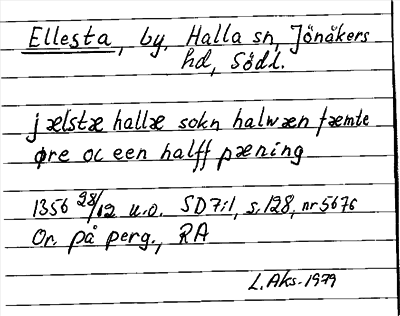 Ellesta, by, Halla sn, Jönåkers
hd, Södl.
j ælstæ hallæ sokn halwæn fæmte
øre oc een halff pæning
1356 28/12 u.o. SD7:1, s.128, nr 5676
Or. på perg., RA
L. Aks. 1979